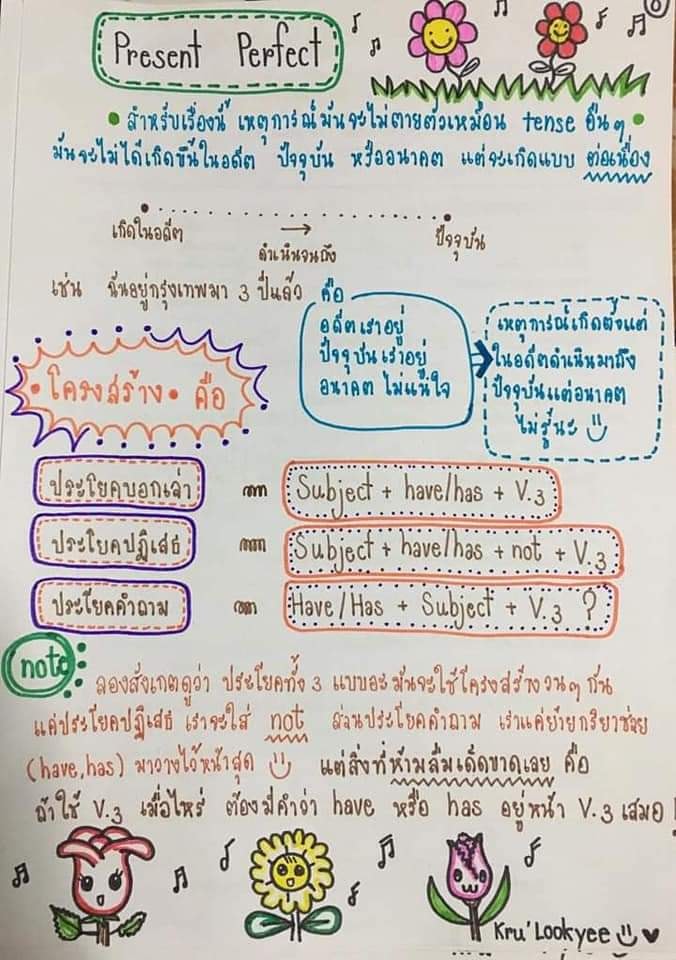 Present Perfect
สำหรับเรื่องนี้ เหตุการณ์มันจะไม่ตายตัวเหมือน tense อื่นๆ
มันจะไม่ได้เกิดขึ้นในอดีต ปัจจุบัน หรืออนาคต แต่จะเกิดแบบ ต่อเนื่อง
เกิดในอดีต
→
ดำเนินจนถึง
ปัจจุบัน
เช่น ฉันอยู่กรุงเทพมา 3 ปีแล้ว คือ
อดีตเราอยู่
ปัจจุบันเราอยู่
อนาคต ไม่แน่ใจ
เหตุการณ์เกิดตั้งแต่
ในอดีตดำเนินมาถึง
ปัจจุบันแต่อนาคต
ไม่รู้นะ
•โครงสร้าง• คือ
ประโยคบอกเล่า Subject + have/has + V.3
ประโยคปฏิเสธ Subject + have/has + not + V.3
ประโยคคำถาม Have/Has + Subject + V.3 ?
note
ลองสังเกตดูว่า ประโยคทั้ง 3 แบบอะมันจะใช้โครงสร้างวนๆ กัน
แค่ประโยคปฏิเสธ เราจะใส่ not ส่วนประโยคคำถาม เราแค่ย้ายกริยาช่วย
(have,has) มาวางไว้หน้าสุด แต่สิ่งที่ห้ามลืมเด็ดขาดเลย คือ
ถ้าใช้ V.3 เมื่อไหร่ ต้องมีคำว่า have หรือ has อยู่หน้า V.3 เสมอ !
Kru'Lookyee